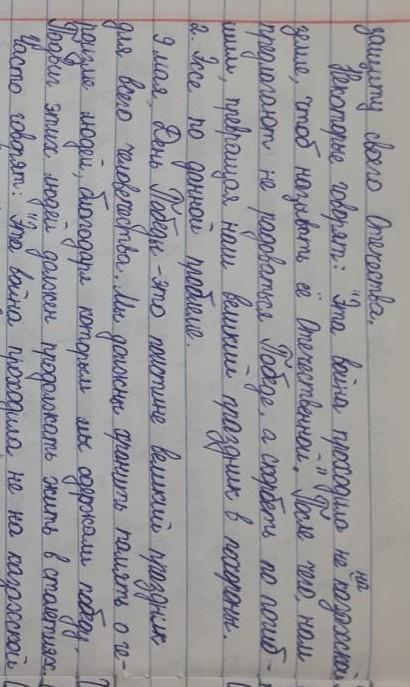 защиту своего Отечества.
Некоторые говорят: "Эта война проходила не на казахской
земле, чтоб называть её Отечественной". Более того, нам
предлагают не радоваться Победе, а скорбеть по погиб-
шим, превращая наш великий праздник в похороны.
2. Эссе по данной проблеме.
9 мая, День Победы - это поистине великий праздник
для всего человечества. Мы должны хранить память о ге-
роизме людей, благодаря которым мы одержали победу.
Подвиг этих людей должен продолжать жить в столетиях.
Часто говорят: "Эта война проходила не на казахской